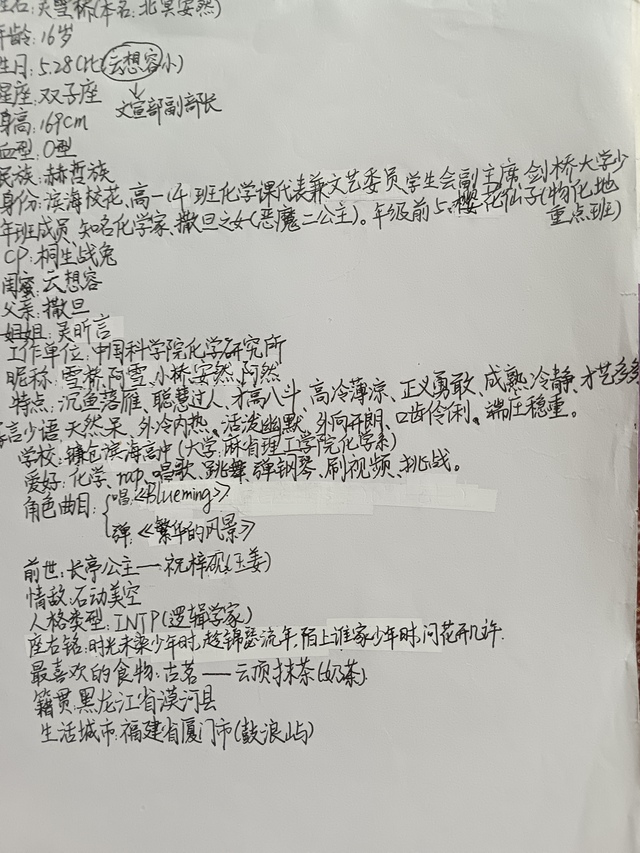 名:吴雪桥(本名:北冥安然)
年龄:16岁
生日:5.28(比云想容小)
星座:双子座
文宣部副部长
身高:169cm
血型:O型
民族:赫哲族
身份:滨海校花、高一14班化学课代表兼文艺委员、学生会副主席、剑桥大学少
年班成员、知名化学家、撒旦之女(恶魔二公主)。年级前5、樱花仙子(物化地
重点班)
CP:桐生战兔
闺蜜:云想容
父亲:撒旦
姐姐:吴昕言
工作单位:中国科学院化学研究所
昵称:雪桥、阿雪、小桥、安然、阿然
特点:沉鱼落雁、聪慧过人、才高八斗、高冷薄凉、正义勇敢、成熟冷静、才艺多多
言少语、天然呆、外冷内热、活泼幽默、外向开朗、口齿伶俐、端庄稳重。
学校:镰仓滨海高中(大学:麻省理工学院化学系)
爱好:化学、rap、唱歌、跳舞、弹钢琴、刷视频、挑战。
角色曲目:{唱:《Blueming》
弹:《繁华的风景》
前世:长亭公主——祝梓砚(玉姜)
情敌:石动美空
人格类型:INTP(逻辑学家)
座右铭:时光未染少年时,趁锦瑟流年,陌上谁家少年时,问花开几许.
最喜欢的食物:古茗——云顶抹茶(奶茶)
籍贯:黑龙江省漠河县
生活城市:福建省厦门市(鼓浪屿)